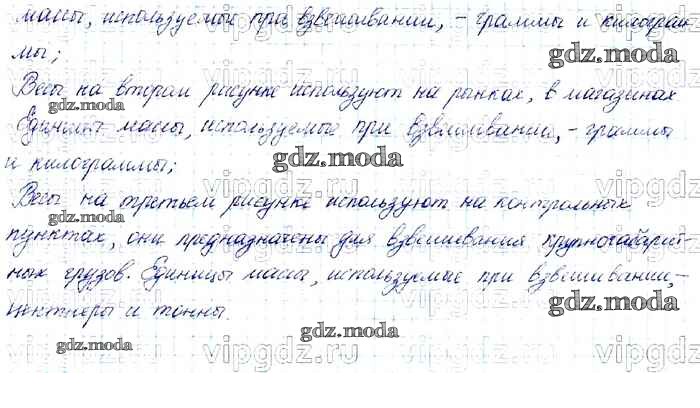 массы, используемые при взвешивании, – граммы и килограм-
мы;
gdz.moda
Весы на втором рисунке используют на рынках, в магазинах
gdz.moda
Единицы массы, используемые при взвешивании, – граммы
и килограммы;
gdz.moda
vipgdz.ru
vipgdz.ru
vipgdz
Весы на третьем рисунке используют на контрольных
gdz.moda
пунктах, они предназначены для взвешивания крупногабарит-
ных грузов. Единицы массы, используемые при взвешивании, –
центнеры и тонны.
gdz.moda
gdz.moda
gdz.moda
vipgdz.ru
vipgdz.ru
vipgdz